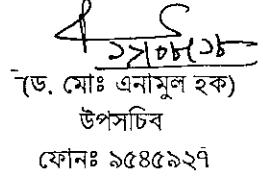 ২৭/০৮/১৮
(ড. মোঃ এনামুল হক)
উপসচিব
ফোনঃ ৯৫৪৫৯২৭